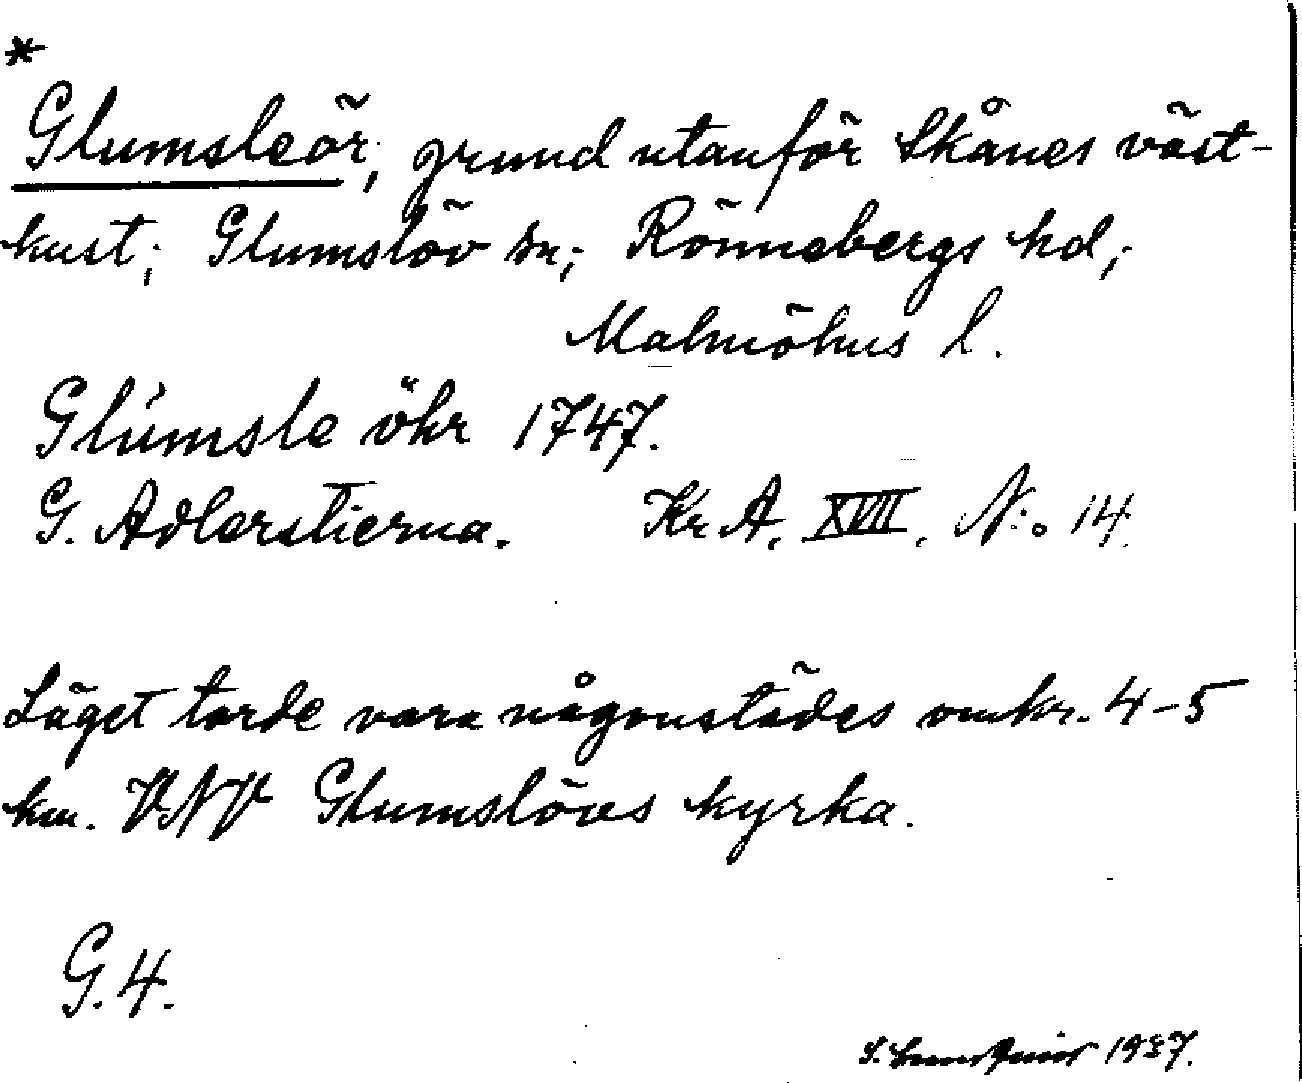 *
Glumsleör, grund utanför Skånes väst-
kust; Glumslöv sn; Rönnebergs hd;
Malmöhus l.
Glúmsle öhr 1747.
G. Adlerstierna. Kr. A. XVII. N:o 14.
Läget torde vara någonstädes omkr. 4-5
km. VNV Glumslövs kyrka.
G. 4.
S. 1937.